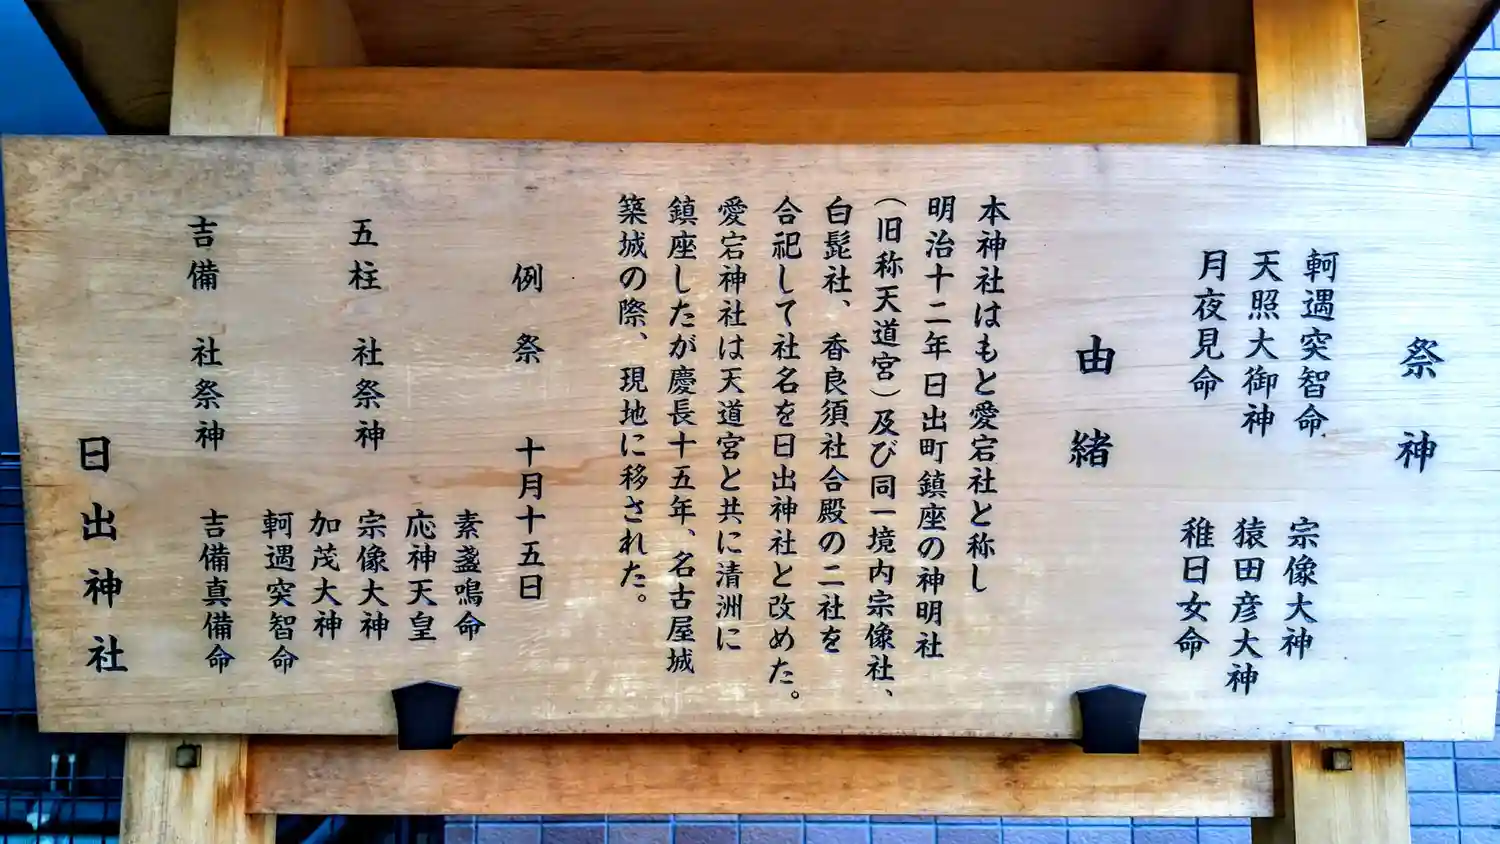 祭神
軻遇突智命
天照大御神
月夜見命
宗像大神
猿田彦大神
稚日女命
由緒
本神社はもと愛宕社と称し
明治十二年日出町鎮座の神明社
(旧称天道宮)及び同一境内宗像社、
白髭社、香良須社合殿の二社を
合祀して社名を日出神社と改めた。
愛宕神社は天道宮と共に清洲に
鎮座したが慶長十五年、名古屋城
築城の際、現地に移された。
例祭 十月十五日
五柱社祭神
素盞鳴命
応神天皇
宗像大神
加茂大神
軻遇突智命
吉備社祭神
吉備真備命
日出神社